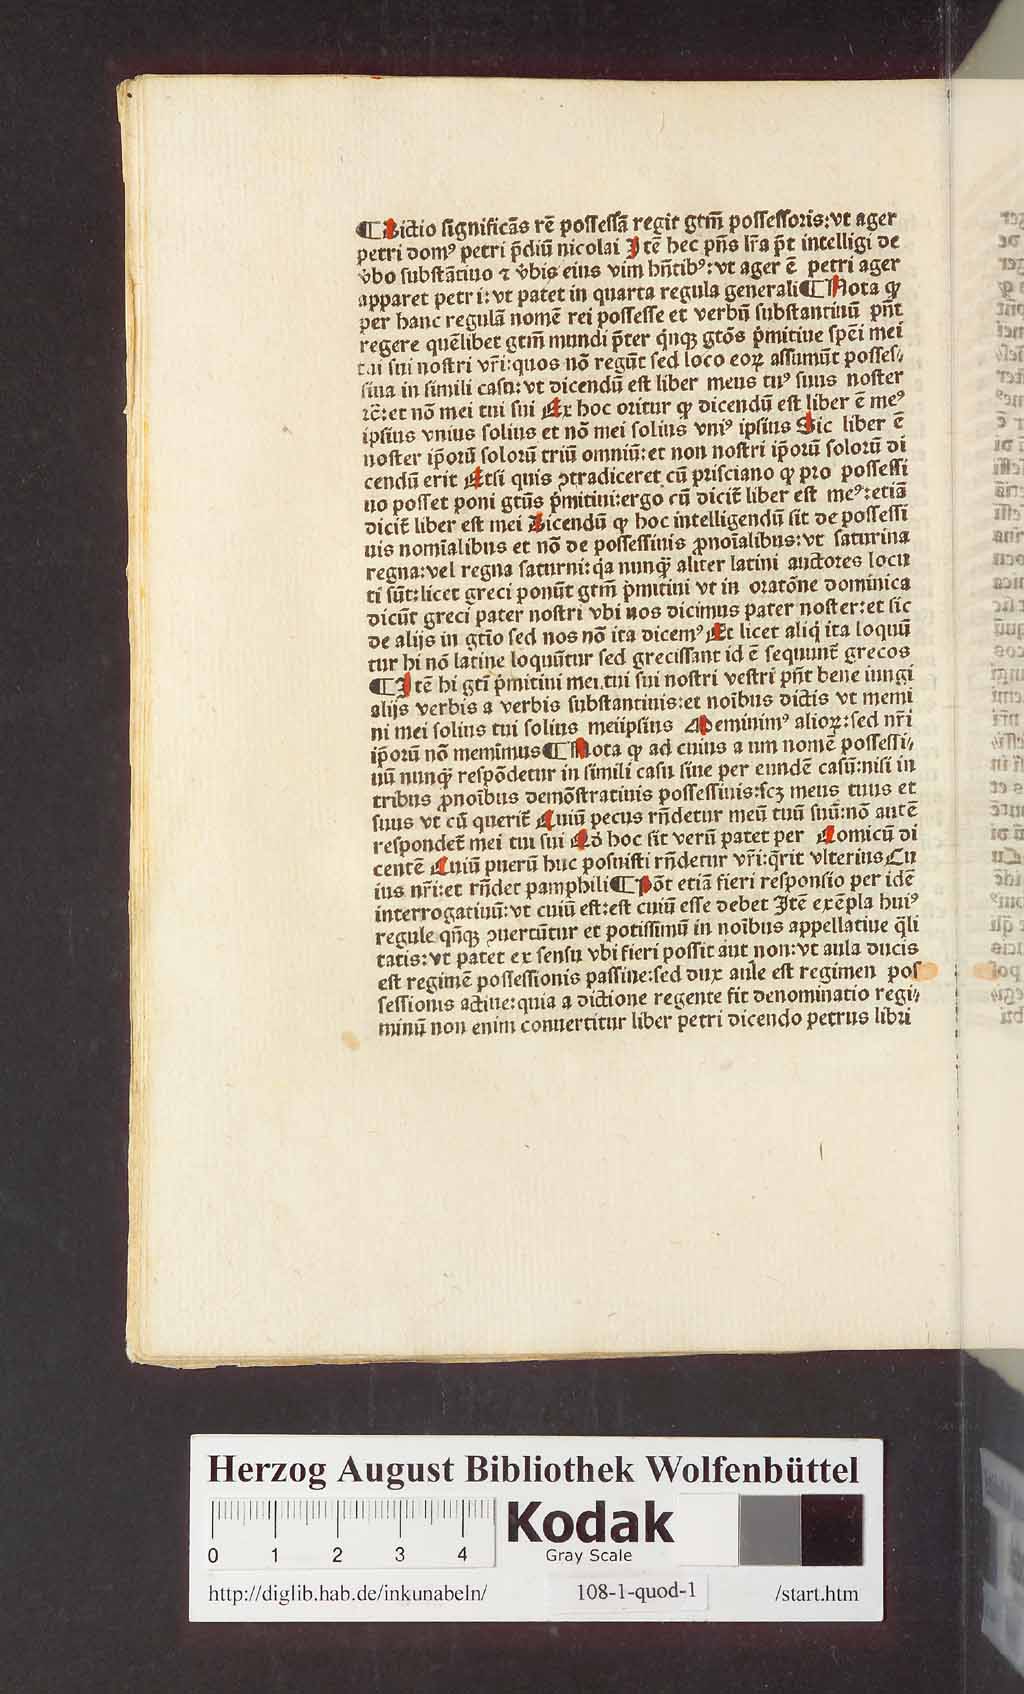 ¶ Dictio significās rē possessā regit gtm̄ possessoris: vt ager
petri domꝰ petri p̄diū nicolai Itē hec pn̄s lr̄a pt̄ intelligi de
v̓bo substātiuo ⁊ v̓bis eius vim hn̄tibꝰ: vt ager ē petri ager
apparet petri: vt patet in quarta regula generali ¶ Nota ꝙ
per hanc regulā nomē rei possesse et verbū substantiuū pn̄t
regere quēlibet gtm̄ mundi p̄ter q̓nqꝫ gtōs p̓mitiue spēi mei
tui sui nostri vr̄i: quos nō regūt sed loco eoꝝ assumūt posses⸗
siua in simili casu: vt dicendū est liber meus tuꝰ suus noster
⁊c̄: et nō mei tui sui Ex hoc oritur ꝙ dicendū est liber ē meꝰ
ipsius vnius solius et nō mei solius vniꝰ ipsius Sic liber ē
noster ip̄orū solorū triū omniū: et non nostri ip̄orū solorū di
cendū erit Etsi quis ꝯtradiceret cū prisciano ꝙ pro possessi
uo posset poni gtūs p̓mitiui: ergo cū dicit̄ liber est meꝰ: etiā
dicit̄ liber est mei Dicendū ꝙ hoc intelligendū sit de possessi
uis nomīalibus et nō de possessiuis ꝓnoīalibus: vt saturina
regna: vel regna saturni: q̓a nunqꝫ aliter latini auctores locu
ti sūt: licet greci ponūt gtm̄ p̓mitiui vt in oratōne dominica
dicūt greci pater nostri vbi nos dicimus pater noster: et sic
de alijs in gtīo sed nos nō ita dicemꝰ Et licet aliq̓ ita loquū
tur hi nō latine loquūtur sed grecissant id ē sequunt̄ grecos
¶ Itē hi gtī p̓mitiui mei. tui sui nostri vestri pn̄t bene iungi
alijs verbis a verbis substantiuis: et noībus dictis vt memi
ni mei solius tui solius meiipsius Meminimꝰ alioꝝ: sed nr̄i
ip̄orū nō memimus ¶ Nota ꝙ ad cuius a um nomē possessi⸗
uū nunqꝫ respōdetur in simili casu siue per eundē casū: nisi in
tribus ꝓnoībus demōstratiuis possessiuis: scꝫ meus tuus et
suus vt cū querit̄ Cuiū pecus rn̄detur meū tuū suū: nō autē
respondet̄ mei tui sui Qd̓ hoc sit verū patet per Comicū di
centē Cuiū puerū huc posuisti rn̄detur vr̄i: q̄rit vlterius Cu
ius nr̄i: et rn̄det pamphili ¶ Pōt etiā fieri responsio per idē
interrogatiuū: vt cuiū est: est cuiū esse debet Itē exēpla huiꝰ
regule qn̄qꝫ ꝯuertūtur et potissimū in noībus appellatiue q̄li
tatis: vt patet ex sensu vbi fieri possit aut non: vt aula ducis
est regimē possessionis passiue: sed dux aule est regimen pos
sessionis actiue: quia a dictione regente fit denominatio regi⸗
minū non enim conuertitur liber petri dicendo petrus libri
Herzog August Bibliothek Wolfenbüttel
0 1 2 3 4
Kodak
Gray Scale
http://diglib.hab.de/inkunabeln/ 108-1-quod-1 /start.htm